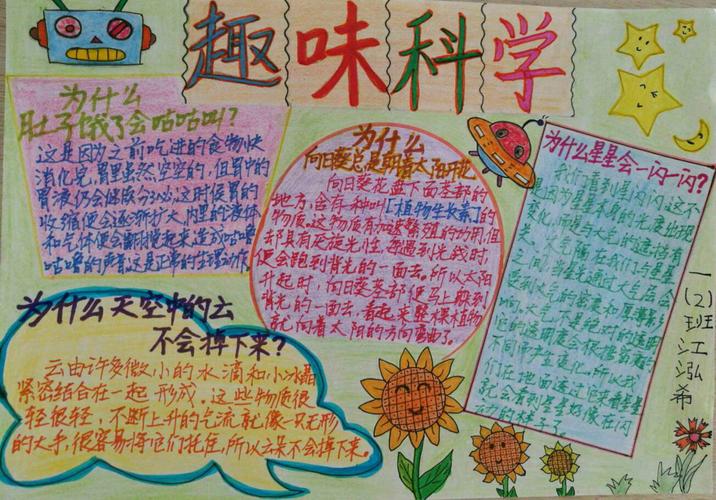 趣味科学
为什么
肚子饿了会咕咕叫?
这是因为之前吃进的食物快
消化完,胃里虽然空空的,但胃中的
胃液仍会继续分泌,这时候胃的
收缩便会逐渐扩大,内里的液体
和气体便会翻搅起来,造成咕噜
咕噜的声音,这是正常的生理动作。
为什么
向日葵总是朝着太阳开花
向日葵花盘下面茎部的
地方,含有一种叫[植物生长素]的
物质,这物质有加速繁殖的功用,但
却具有反旋光性,每遇到光线时,
便会跑到背光的一面去。所以太阳
升起时,向日葵茎部便马上躲到
背光的一面去,看起来整棵植物
就向着太阳的方向弯曲了。
为什么星星会一闪一闪?
我们看到星闪闪,这不
是因为星星本身的光度出现
变化,而是与大气的遮挡有
关。大气隔在我们与星星
之间,当星光通过大气层会
受到大气的密度和厚薄影
响,大气不是绝对的透明
它的透明度会根据密度
不同而产生变化。所以我
们在地面透过它来看星星
就会看到星星好像在闪
动的样子了。
一(2)班江泓希
为什么天空中的云
不会掉下来?
云由许多微小的水滴和小冰晶
紧密结合在一起形成。这些物质很
轻很轻,不断上升的气流就像一只无形
的大手,很容易将它们托住,所以云朵不会掉下来。